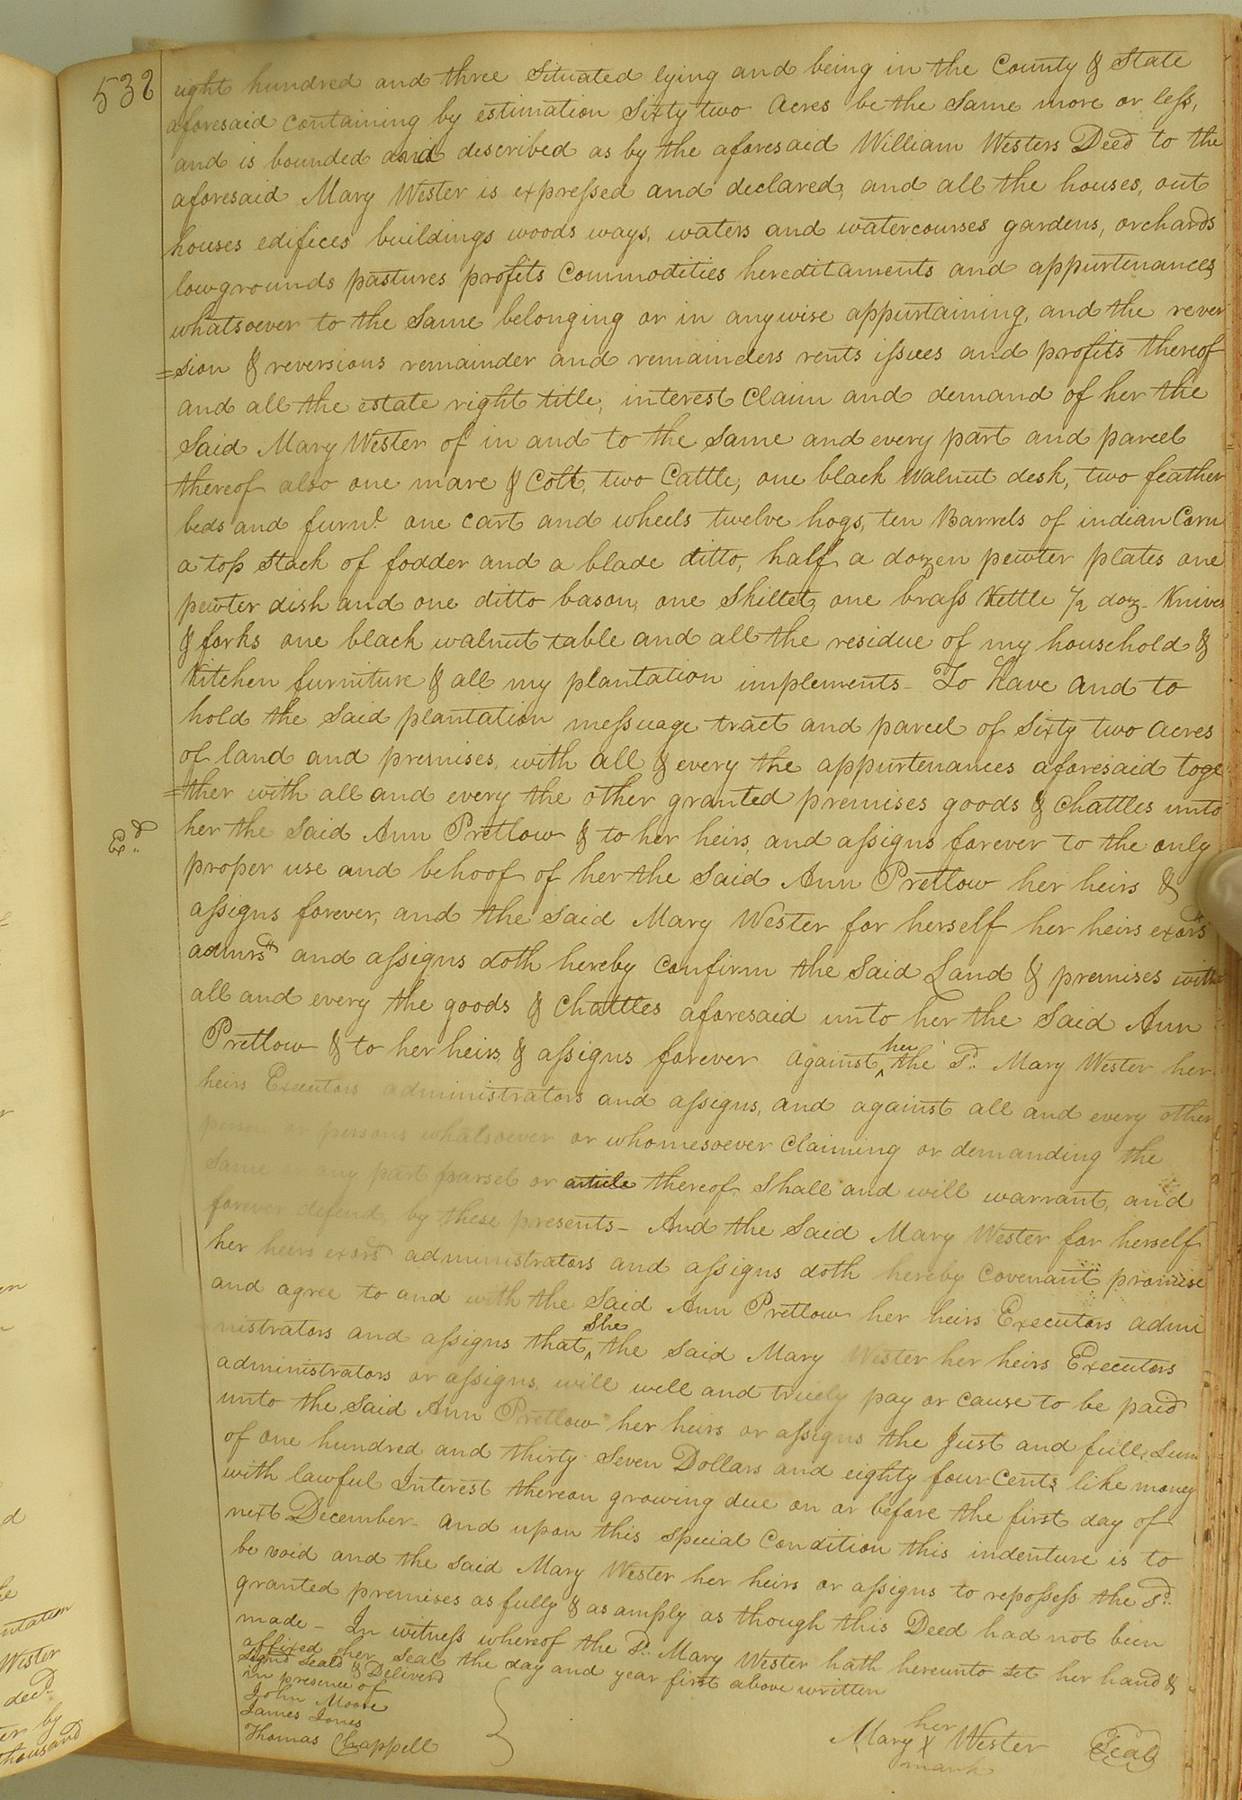 532
eight hundred and three Situated lying and being in the County & State
aforesaid containing by estimation Sixty two Acres be the Same more or less,
and is bounded and described as by the aforesaid William Westers Deed to the
aforesaid Mary Wester is expressed and declared, and all the houses, out
houses edifices buildings woods ways, waters and watercourses gardens, orchards
lowgrounds pastures profits Commodities hereditaments and appurtenances
whatsoever to the Same belonging or in anywise appurtaining, and the rever
=sion & reversions remainder and remainders rents issues and profits thereof
and all the estate right title, interest Claim and demand of her the
Said Mary Wester of in and to the Same and every part and parcel
thereof also one mare & Colt, two Cattle, one black Walnut desk, two feather
beds and furn.e one cart and wheels twelve hogs, ten Barrels of indian Corn
a top Stack of fodder and a blade ditto, half a dozen pewter plates one
pewter dish and one ditto bason, one Skillet, one brass Kettle 1/2 doz. Knives
& forks one black walnut table and all the residue of my household &
Kitchen furniture & all my plantation implements - To have and to
hold the Said plantation messuage tract and parcel of Sixty two acres
of land and premises, with all & every the appurtenances aforesaid toge
=ther with all and every the other granted premises goods & Chattles unto
Ex.d
her the Said Ann Pretlow & to her heirs, and assigns forever to the only
proper use and behoof of her the Said Ann Pretlow her heirs &
assigns forever, and the Said Mary Wester for herself her heirs exors
admrs and assigns doth hereby Confirm the Said Land & premises with
all and every the goods & Chattles aforesaid unto her the Said Ann
Pretlow & to her heirs & assigns forever against ^her the Sd. Mary Wester her
heirs Executors administrators and assigns, and against all and every other
person persons whatsoever or whomesoever Claiming or demanding the
Same any part parsel or article thereof Shall and will warrant, and
forever defend, by these presents - And the Said Mary Wester for herself
her heirs exors administrators and assigns doth hereby Covenant promise
and agree to and with the Said Ann Pretlow her heirs Executors admi
nistrators and assigns that ^She the Said Mary Wester her heirs Executors
administrators or assigns, will well and truely pay or cause to be paid
unto the Said Ann Pretlow her heirs or assigns the Just and full Sum
of one hundred and thirty Seven Dollars and eighty four Cents like money
with lawful Interest thereon growing due on or before the first day of
next December - and upon this Special Condition this indenture is to
be void and the Said Mary Wester her heirs or assigns to repossess the Sd.
granted premises as fully & as amply as though this Deed had not been
made - In witness whereof the Sd. Mary Wester hath hereunto Set her hand &
affixed her Seal the day and year first above written
Signd Seald & Deliverd
in presence of
John Moore
James Jones
Thomas Chappell
her
Mary X Wester Seal
mark
ntation
Wester
decd.
er by
thousand